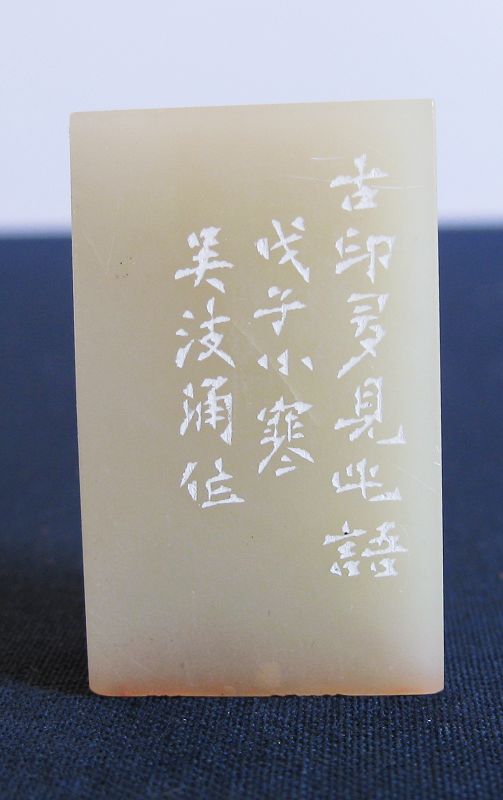 古印多見此語
戊子小寒
吴波涌作